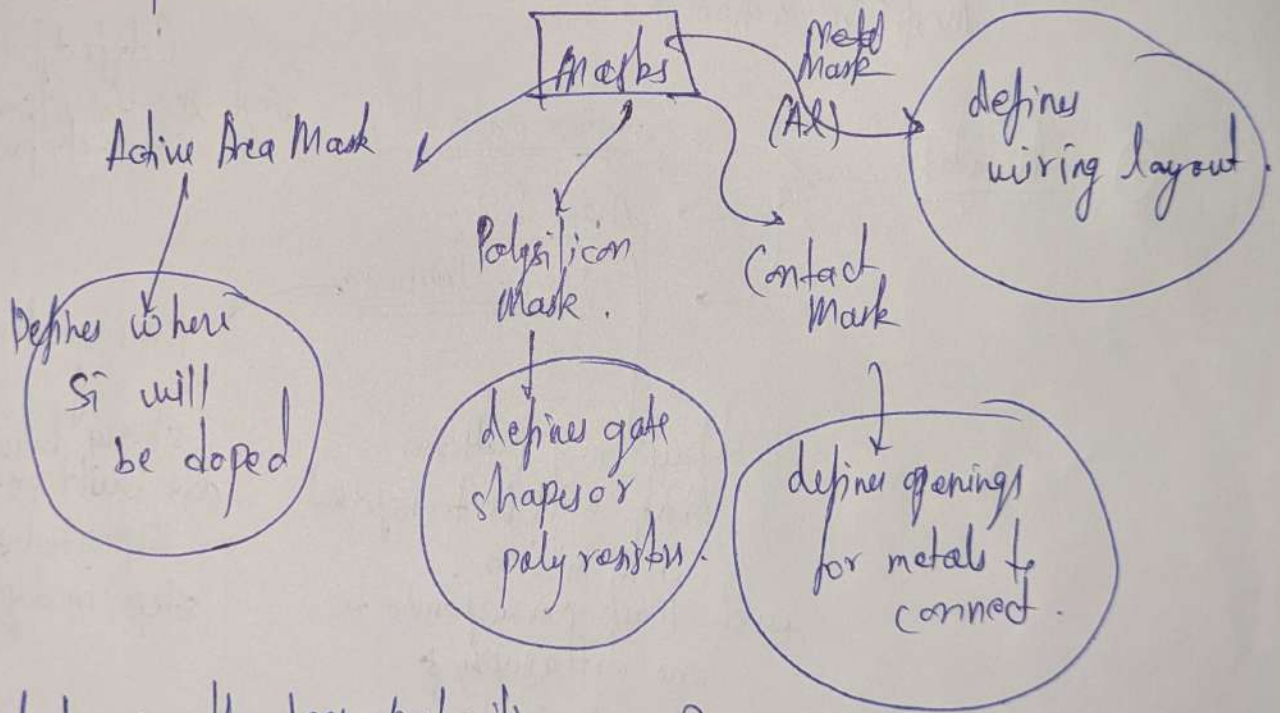 Masks
Metal
Mask
(Al)
defines
wiring layout.
Active Area Mask
Polysilicon
Mask.
Contact
Mask
Defines where
Si will
be doped
defines gate
shapes or
poly resistors.
defines openings
for metals to
connect.